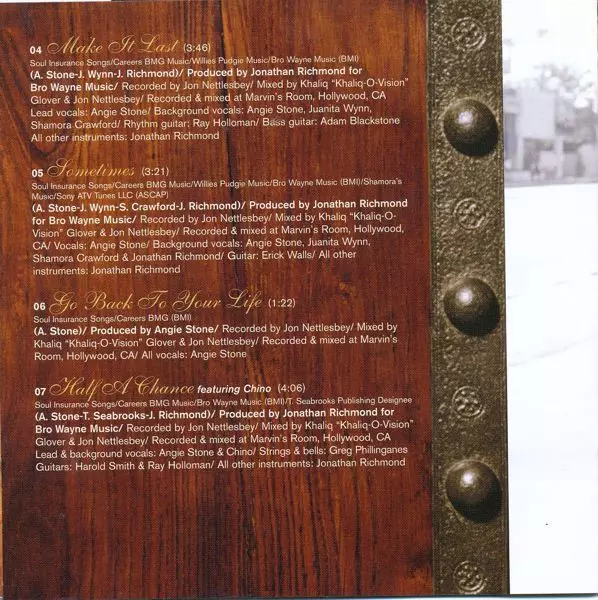 04 Make It Last (3:46)
Soul Insurance Songs/Careers BMG Music/Willies Pudgie Music/Bro Wayne Music (BMI)
(A. Stone-J. Wynn-J. Richmond)/ Produced by Jonathan Richmond for
Bro Wayne Music/ Recorded by Jon Nettlesbey/ Mixed by Khaliq "Khaliq-O-Vision"
Glover & Jon Nettlesbey/ Recorded & mixed at Marvin's Room, Hollywood, CA
Lead vocals: Angie Stone/ Background vocals: Angie Stone, Juanita Wynn,
Shamora Crawford/ Rhythm guitar: Ray Holloman/ Bass guitar: Adam Blackstone
All other instruments: Jonathan Richmond
05 Sometimes (3:21)
Soul Insurance Songs/Careers BMG Music/Willies Pudgie Music/Bro Wayne Music (BMI)/Shamora's
Music/Sony ATV Tunes LLC (ASCAP)
(A. Stone-J. Wynn-S. Crawford-J. Richmond)/ Produced by Jonathan Richmond
for Bro Wayne Music/ Recorded by Jon Nettlesbey/ Mixed by Khaliq "Khaliq-O-
Vision" Glover & Jon Nettlesbey/ Recorded & mixed at Marvin's Room, Hollywood,
CA/ Vocals: Angie Stone/ Background vocals: Angie Stone, Juanita Wynn,
Shamora Crawford & Jonathan Richmond/ Guitar: Erick Walls/ All other
instruments: Jonathan Richmond
06 Go Back To Your Life (1:22)
Soul Insurance Songs/Careers BMG (BMI)
(A. Stone)/ Produced by Angie Stone/ Recorded by Jon Nettlesbey/ Mixed by
Khaliq "Khaliq-O-Vision" Glover & Jon Nettlesbey/ Recorded & mixed at Marvin's
Room, Hollywood, CA/ All vocals: Angie Stone
07 Half A Chance featuring Chino (4:06)
Soul Insurance Songs/Careers BMG Music/Bro Wayne Music (BMI)/T. Seabrooks Publishing Designee
(A. Stone-T. Seabrooks-J. Richmond)/ Produced by Jonathan Richmond for
Bro Wayne Music/ Recorded by Jon Nettlesbey/ Mixed by Khaliq "Khaliq-O-Vision"
Glover & Jon Nettlesbey/ Recorded & mixed at Marvin's Room, Hollywood, CA
Lead & background vocals: Angie Stone & Chino/ Strings & bells: Greg Phillinganes
Guitars: Harold Smith & Ray Holloman/ All other instruments: Jonathan Richmond